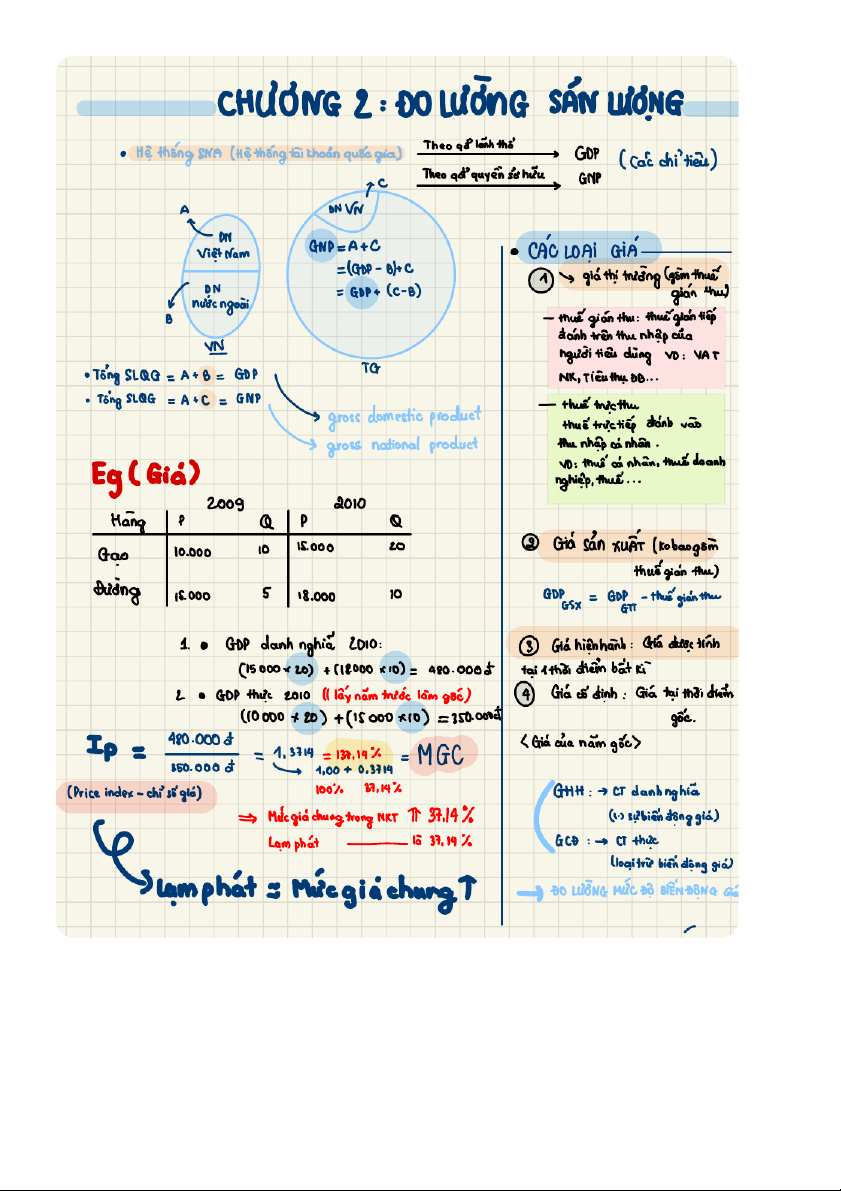 CHƯƠNG 2 : ĐO LƯỜNG SẢN LƯỢNG
• Hệ thống SNA (Hệ thống tài khoản quốc gia)
Theo qđ lãnh thổ
GDP
Theo qđ quyền sở hữu
GNP
(Các chỉ tiêu)
A
DN
Việt Nam
DN
nước ngoài
B
VN
C
DN VN
GNP = A + C
= (GDP - B) + C
= GDP + (C - B)
TG
• Tổng SLQG = A + B = GDP
• Tổng SLQG = A + C = GNP
gross domestic product
gross national product
Eg ( Giá )
2009 2010
Hàng P Q P Q
Gạo 10.000 10 15.000 20
Đường 15.000 5 18.000 10
1. • GDP danh nghĩa 2010:
(15 000 × 20) + (18000 × 10) = 480.000 đ
2 • GDP thực 2010 (lấy năm trước làm gốc)
(10 000 × 20) + (15 000 × 10) = 350.000đ
Ip = 480.000 đ / 350.000 đ = 1,3714 = 137,14% = MGC
1,00 + 0,3714
100% 37,14%
(Price index - chỉ số giá)
⇒ Mức giá chung trong NKT ⇑ 37,14%
Lạm phát là 37,14%
Lạm phát = Mức giá chung ↑
• CÁC LOẠI GIÁ
1 ↘ giá thị trường (gồm thuế
gián thu)
— thuế gián thu: thuế gián tiếp
đánh trên thu nhập của
người tiêu dùng VD: VAT
NK, Tiêu thụ ĐB...
— thuế trực thu
thuế trực tiếp đánh vào
thu nhập cá nhân.
VD: thuế cá nhân, thuế doanh
nghiệp, thuế ...
2 Giá SẢN XUẤT (ko bao gồm
thuế gián thu)
GDP GSX = GDP GTT - thuế gián thu
3 Giá hiện hành : Giá được tính
tại 1 thời điểm bất kì
4 Giá cố định : Giá tại thời điểm
gốc.
<Giá của năm gốc>
GHH : → CT danh nghĩa
(:) sự biến động giá)
GCĐ : → CT thực
(loại trừ biến động giá)
→ ĐO LƯỜNG MỨC ĐỘ BIẾN ĐỘNG Giá